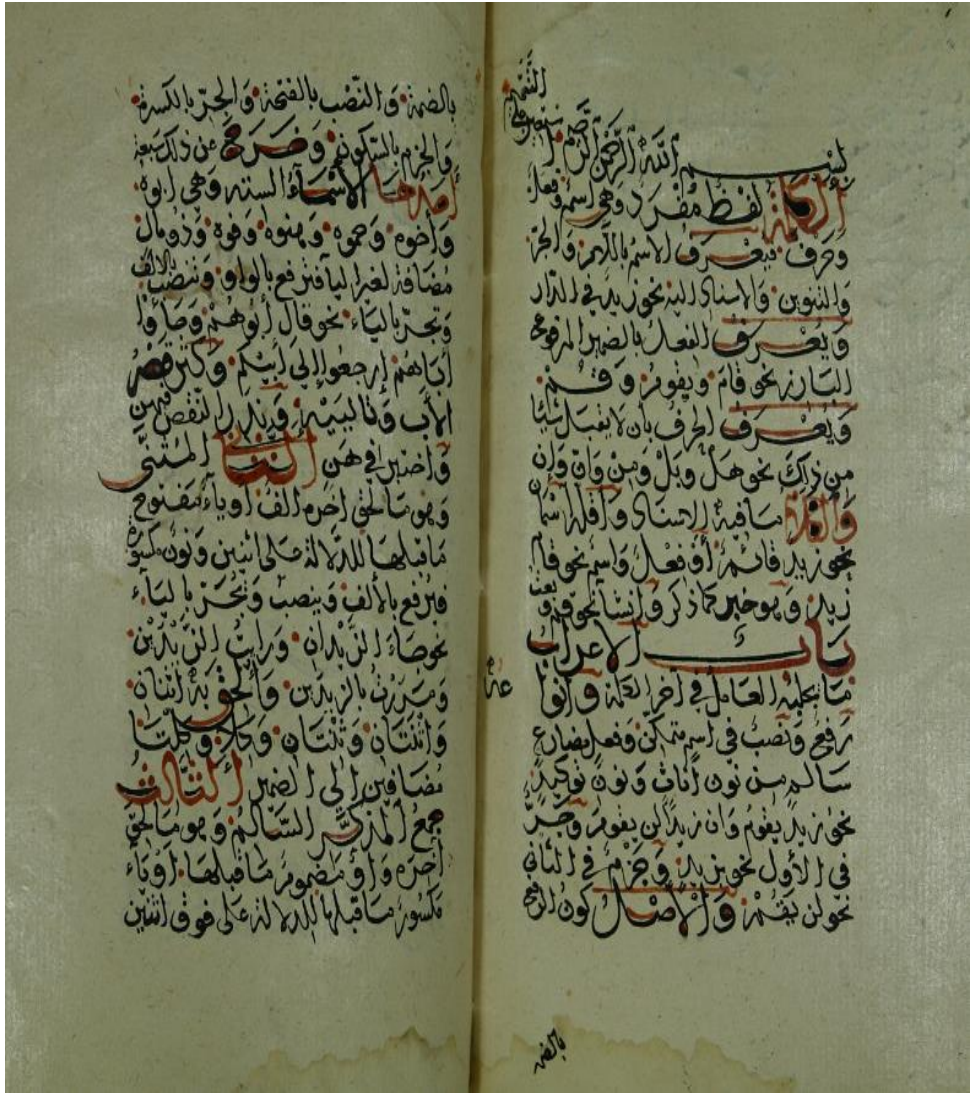 بسم الله الرحمن الرحيم
الكلمة لفظ مفرد وهي اسم وفعل
وحرف فيعرف الاسم باللام والجر
والتنوين والاسناد اليه نحو زيد في الدار
ويعرف الفعل بالضمير المرفوع
البارز نحو قام ويقوم وقم
ويعرف الحرف بان لا يقبل شيئا
من ذلك نحو هل وبل ومن وان وإن
والكلام ما فيه الاسناد واقله اسمان
نحو زيد قائم أو فعل واسم نحو قام
زيد وهو خبر كما ذكر وانشا نحو قم
باب الاعراب
ما يجلبه العامل في اخر الكلمة وانواعه
رفع ونصب في اسم متمكن وفعل مضارع
سالم من نون أناث ونون توكيد
نحو زيد يقوم وان زيدا لن يقوم وجر
في الأول نحو بزيد وجزم في الثاني
نحو لن يقم والأصل كون الرفع
بالضم
بالضمة والنصب بالفتحة والجر بالكسرة
والجزم بالسكون وخرج عن ذلك سبعة
احدها الأسماء الستة وهي ابوه
وأخوه وحموه وهنوه وفوه وذو مال
مضافة لغير اليآ فترفع بالواو وتنصب بالالف
وتجر بالياء نحو قال أبوهم وجاؤا
أباهم إرجعوا إلى أبيكم وكثر قصر
الأب وتالييه وندر النقص فيهن
واختير في هن الثاني المثنى
وهو ما لحق اخره الف أو يآء مفتوح
ما قبلها للدلالة على اثنين ونون مكسورة
فيرفع بالألف وينصب ويجر باليآء
نحو جاء الزيدان ورايت الزيدين
ومررت بالزيدين وألحق به اثنان
واثنتان وثنتان وكلا وكلتا
مضافين إلى الضمير الثالث
جمع المذكر السالم وهو ما لحق
اخره واو مضموم ما قبلها او يآء
مكسور ما قبلها للدلالة على فوق اثنين